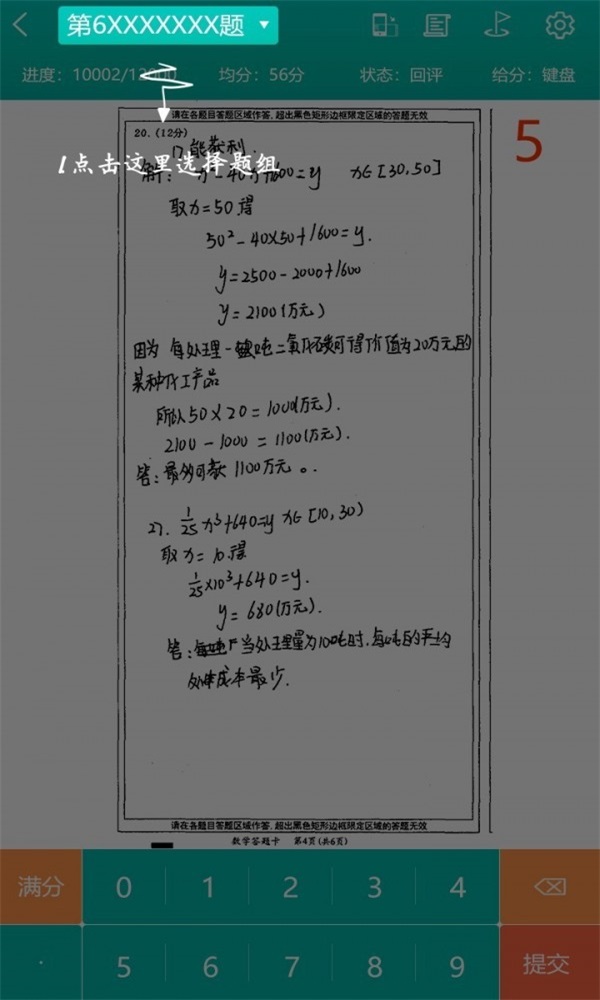 第6XXXXXXX题
进度：10002/12000 均分：56分 状态：回评 给分：键盘
请在各题目答题区域作答，超出黑色矩形边框限定区域的答题无效
20. (12分)
1) 能获利.
1点击这里选择题组
解： x²-40x+1600=y x∈[30,50]
5
取x=50得
50²-40×50+1600=y.
y=2500-2000+1600
y=2100(万元)
因为 每处理一吨二氧化碳可得价值为20万元的
某种化工产品
所以50×20=1000(万元).
2100-1000=1100(万元).
答：最多可获1100万元。
2). 1/25 x³+640=y x∈[10,30)
取x=10.得
1/25×10³+640=y.
y=680(万元).
答：当处理量为10吨时，每吨的平均
处理成本最少.
请在各题目答题区域作答，超出黑色矩形边框限定区域的答题无效
数学答题卡 第4页(共6页)
满分 0 1 2 3 4
. 5 6 7 8 9 提交